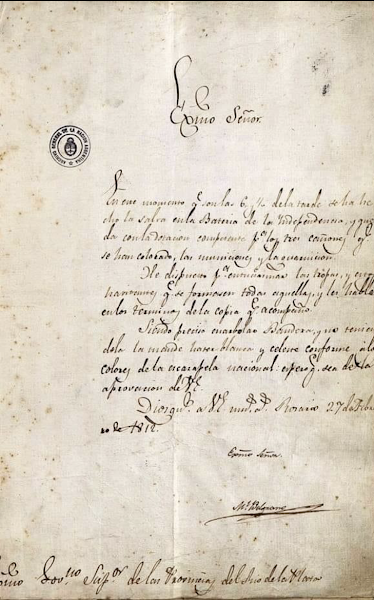 Exmo Señor.
ARCHIVO GENERAL DE LA NACION ARGENTINA
En este momento q. son las 6 1/2 de la tarde se ha he
cho la salva en la Bateria de la Independencia, y que
da con la dotacion competente pa. los tres cañones, q.
se han colocado, las municiones, y la guarnicion.
He dispuesto pa. entusiasmar las tropas, y estos
havitantes, q. se formasen todas aquellas, y les hablé
en los terminos de la copia q. acompaño.
Siendo preciso enarbolar Bandera, y no tenien
dola la mandé hacer blanca y celeste conforme á los
colores de la escarapela nacional: espero q. sea de la
aprovacion de V.E.
Dios gue. a V.E. ms. as. Rosario 27 de Febre
ro de 1812.
Exmo Señor.
Ml. Belgrano
Exmo Govno. Supor. de las Provincias del Rio de la Plata